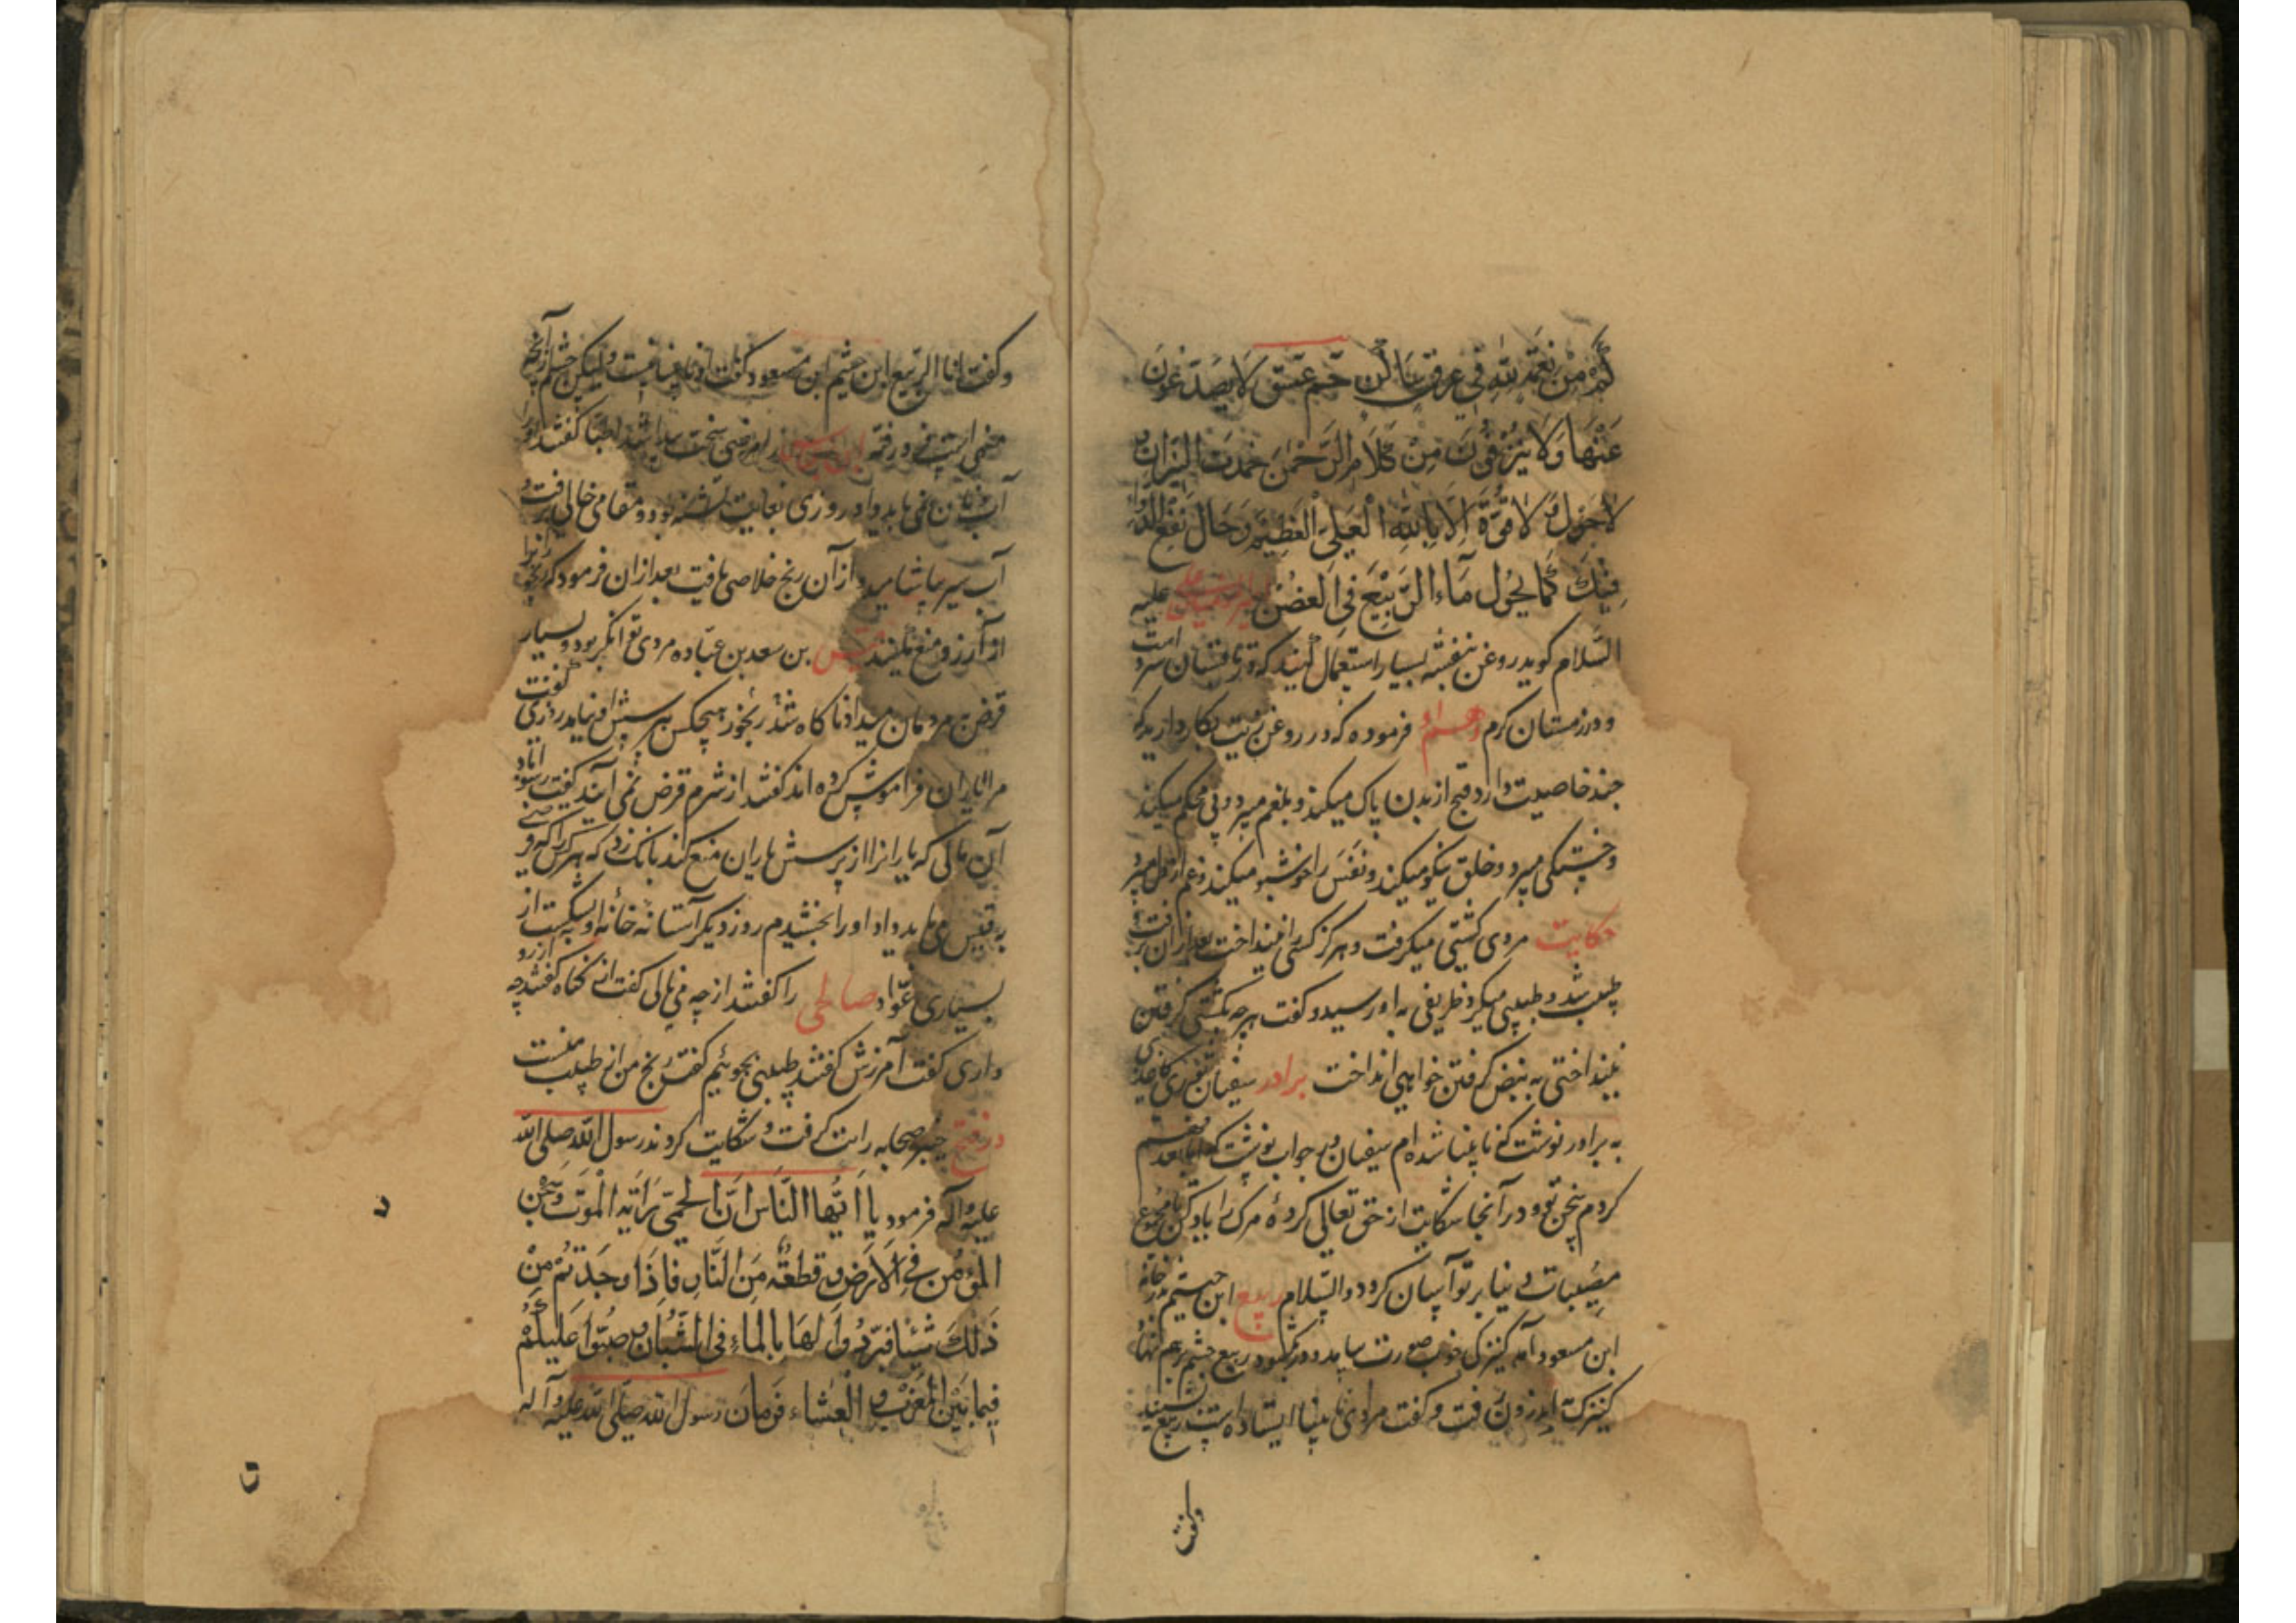 كم من نعمة لله في عرق ساكن حم عسق لا يصدعون
عنها ولا ينزفون من كلام الرحمن خمدت النيران و
لا حول و لا قوة الا بالله العلي العظيم و جال نفع الدواء
فيك كما يجول ماء الربيع في الغصن علیه
السلام گوید روغن بنفشه بسیار استعمال کنید که در تابستان سرد است
و در زمستان گرم فرموده که در روغن زیت بکار دارید که
چند خاصیت دارد قیح از بدن پاک میکند و بلغم میبرد و پی محکم میکند
و خستگی میبرد و خلق نیکو میکند و نفس را خوشبو میکند و غم از دل میبرد
حکایت مردی کشتی میگرفت و هرگز کسی را نینداخت بعد از آن برفت و
طبیب شد و طبیبی میکرد ظریفی به او رسید و گفت هر چه بکشتی گرفتن
نینداختی به نبض گرفتن خواهی انداخت برادر سفیان ثوری کاغذی
به برادر نوشت که نابینا شده ام سفیان در جواب نوشت که اما بعد فهم
کردم سخن تو و در آنجا شکایت از حق تعالی کرده مرگ را یاد کن تا مجموع
مصیبات دنیا بر تو آسان گردد والسلام ربیع ابن خثیم در خانه
ابن مسعود آمد کنیزکی خوب صورت بیامد و در بگشود ربیع چشم بر هم نهاد
کنیزک اندرون رفت و گفت مردی نابینا ایستاده است ربیع بشنید
وگفت
و گفت انا الربیع ابن خثیم ابن مسعود گفت او نابینا نیست ولیکن چشم از آنچه
نهی است فرو رفته را مرضی سخت پیدا شد اطبا گفتند او را
آب دادن نمی باید و او روزی بغایت تشنه بود و مقامی خالی رفت و
آب سیر بیاشامید از آن رنج خلاصی یافت بعد از آن فرمود که رنجور را
از آرزو منع نکنید قیس بن سعد بن عباده مردی توانگر بود و بسیار
قرض به مردمان میداد ناگاه شد رنجور هیچکس بپرسش او نیامد روزی گفت
مرا یاران فراموش کرده اند گفتند از شرم قرض نمی آیند گفت
آن مالی که یاران را از پرسش یاران منع کند بانگ زد که هر کس را که
به قیس می باید داد او را بخشیدم روز دیگر آستانه خانه او بشکست از
بسیاری عواد صالحی را گفتند از چه می نالی گفت از گناه گفتند چه آرزو
داری گفت آمرزش گفتند طبیبی بجوئیم گفت رنج من از طبیب منست
در فتح خیبر صحابه را تب گرفت و شکایت کردند رسول الله صلی الله
علیه و آله فرمود یا ایها الناس ان الحمی رائد الموت و سجن
المؤمن في الارض و قطعة من النار فاذا وجدتم من
ذلك شيئا فبردوا لها بالماء في الشنان و صبوا عليكم
فيما بين المغرب و العشاء فرمان رسول الله صلی الله علیه و آله